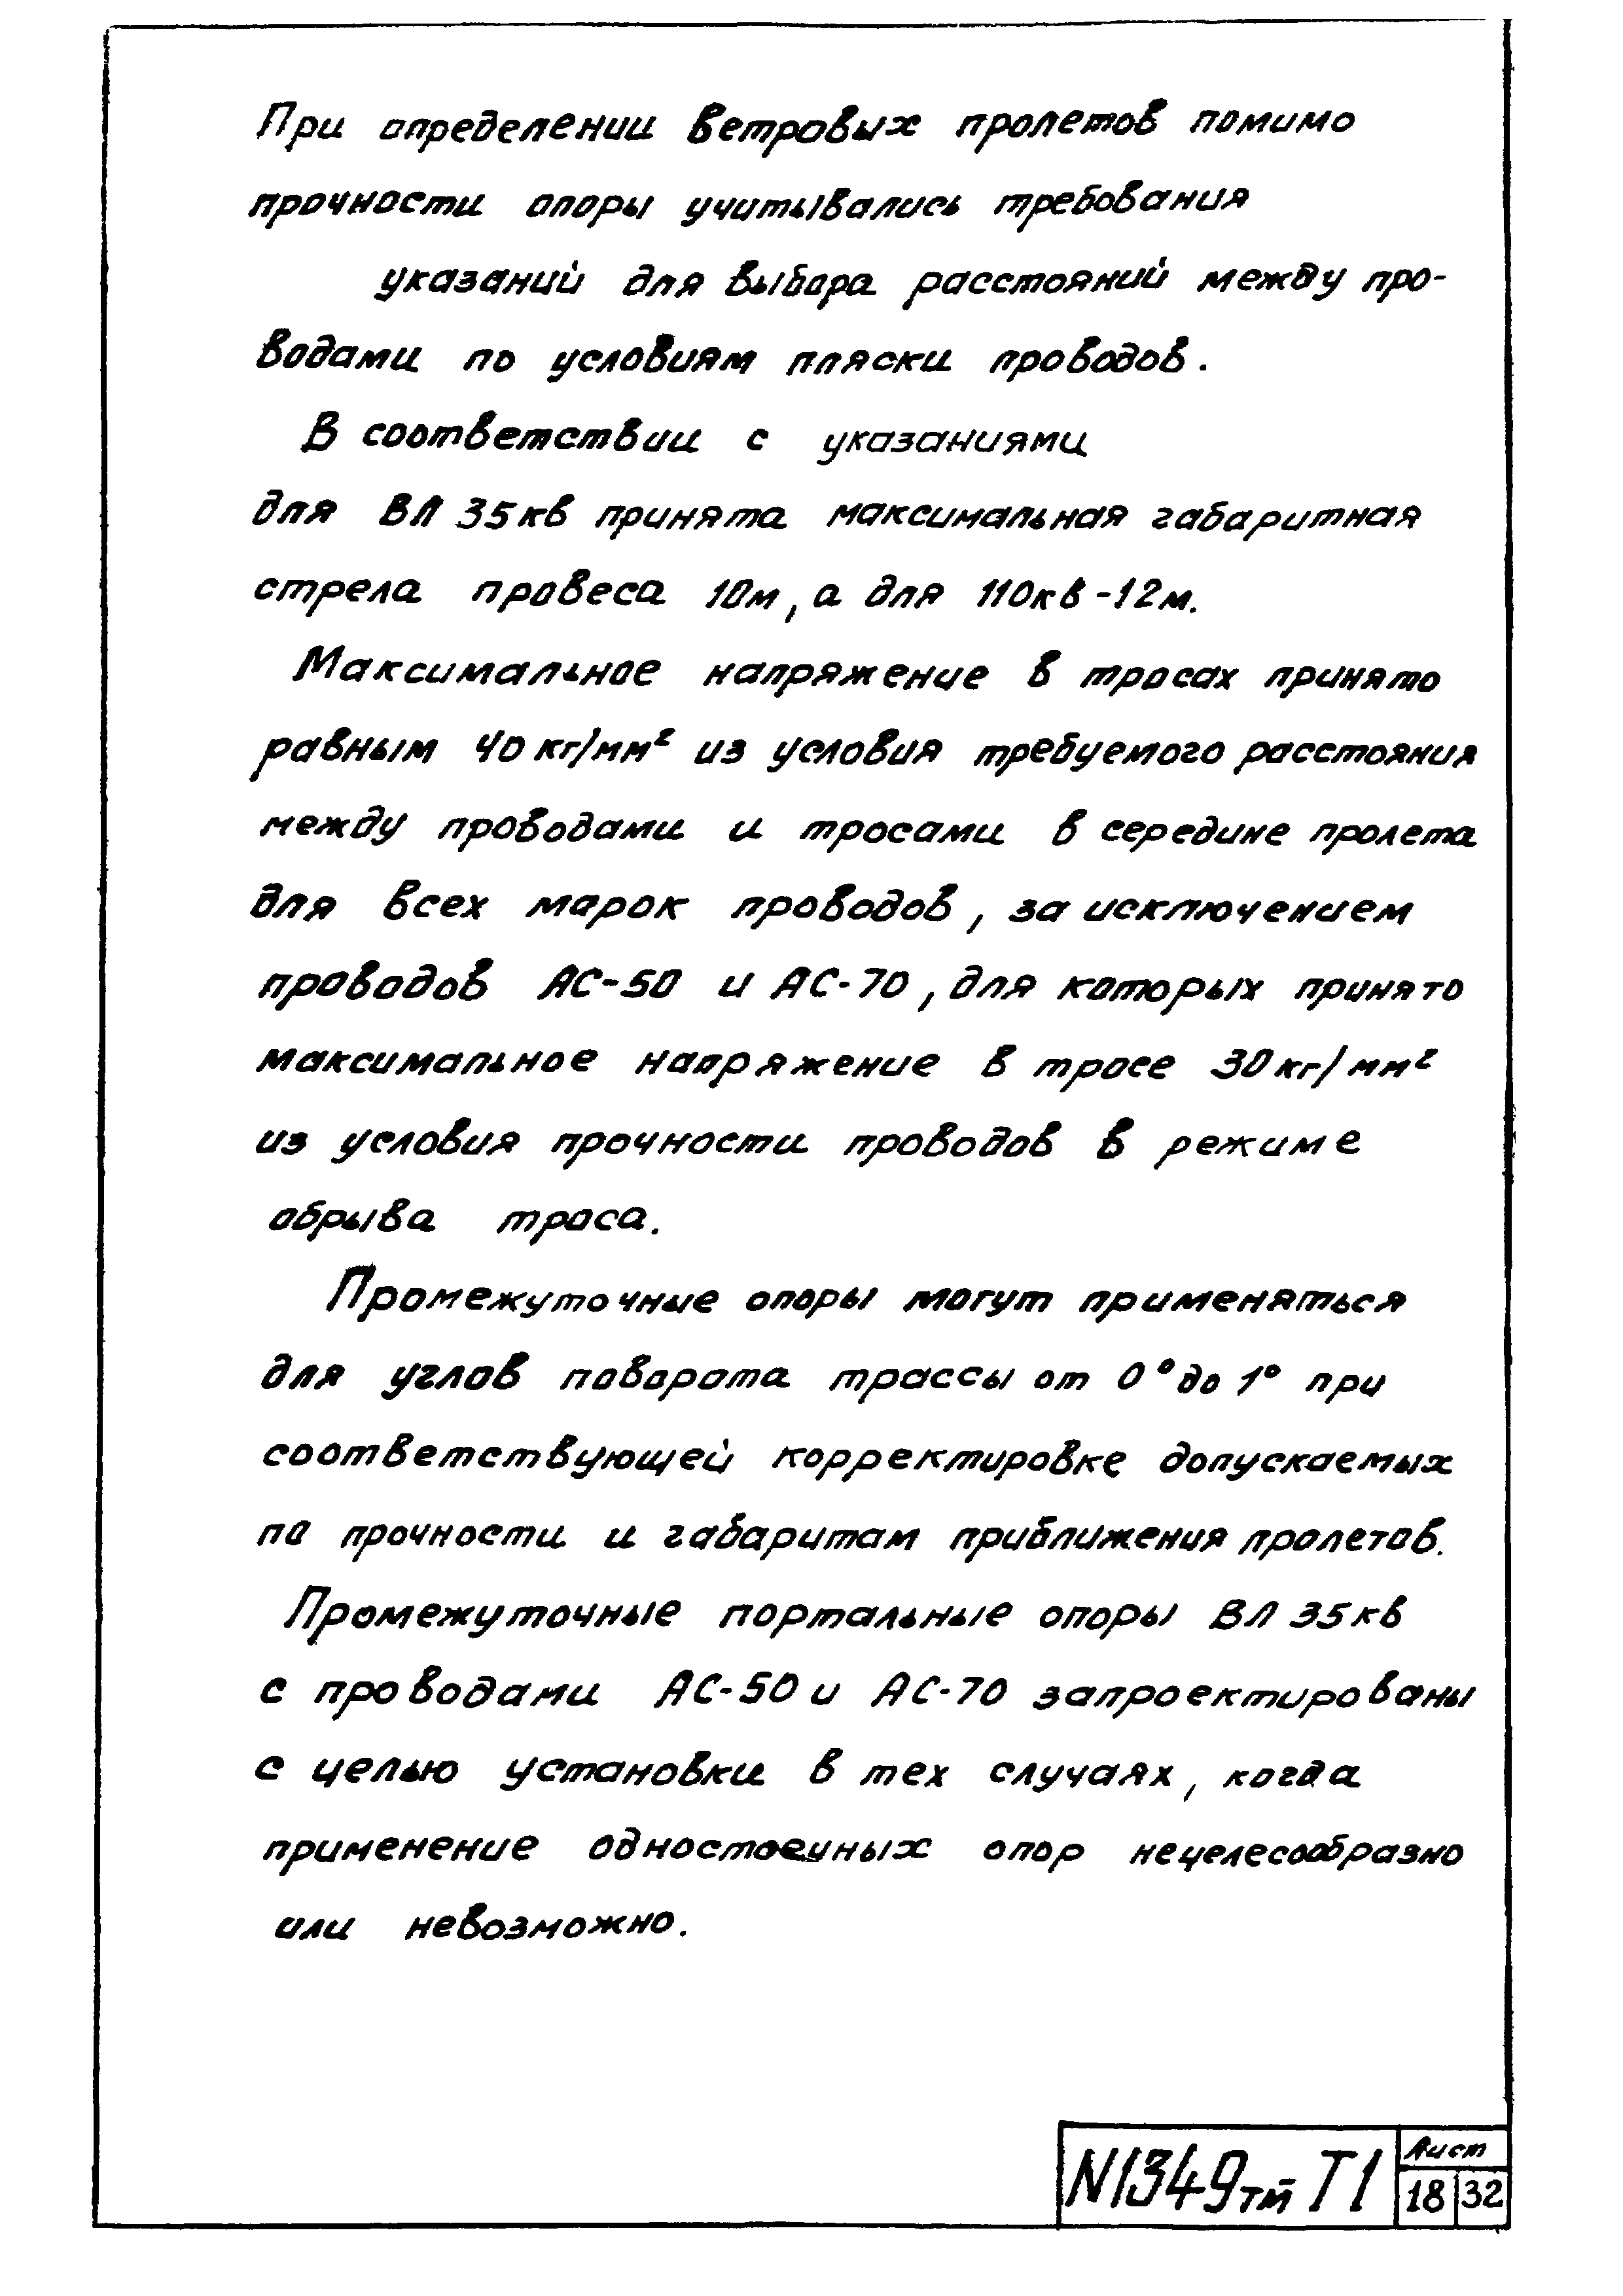 При определении ветровых пролетов помимо
прочности опоры учитывались требования
указаний для выбора расстояний между про-
водами по условиям пляски проводов.
В соответствии с указаниями
для ВЛ 35кв принята максимальная габаритная
стрела провеса 10м, а для 110кв-12м.
Максимальное напряжение в тросах принято
равным 40 кг/мм² из условия требуемого расстояния
между проводами и тросами в середине пролета
для всех марок проводов, за исключением
проводов АС-50 и АС-70, для которых принято
максимальное напряжение в тросе 30кг/мм²
из условия прочности проводов в режиме
обрыва троса.
Промежуточные опоры могут применяться
для углов поворота трассы от 0° до 1° при
соответствующей корректировке допускаемых
по прочности и габаритам приближения пролетов.
Промежуточные портальные опоры ВЛ 35кв
с проводами АС-50 и АС-70 запроектированы
с целью установки в тех случаях, когда
применение одностоечных опор нецелесообразно
или невозможно.
N1349тм Т1
Лист
18 32